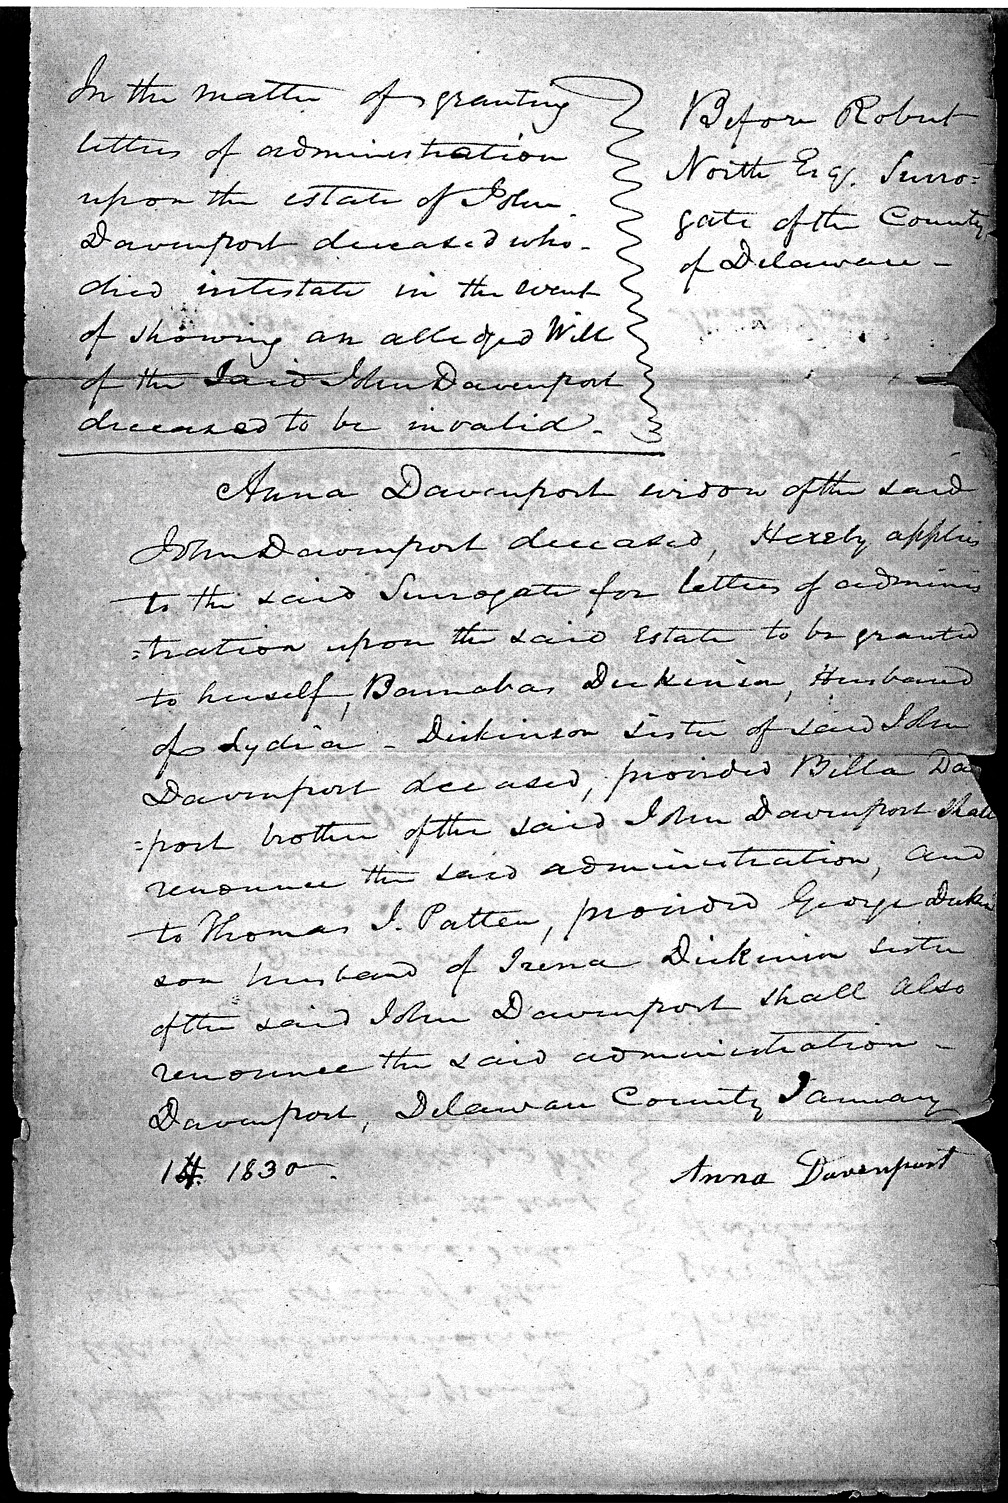 In the matter of granting
letters of administration
upon the estate of John
Davenport deceased who-
died intestate in the event
of showing an alledged Will
of the Said John Davenport
deceased to be invalid.-
Before Robert
North Esq. Surro=
gate of the County
of Delaware-
Anna Davenport widow of the said
John Davenport deceased, Hereby applies
to the said Surrogate for letters of adminis
=tration upon the said Estate to be granted
to herself, Barnabas Dickinson, Husband
of Lydia - Dickinson sister of said John
Davenport deceased, provided Billa Da
=port brother of the said John Davenport shall
renounce the said administration, and
to Thomas J. Patten, provided George Dickin
son husband of Irena Dickinson sister
of the said John Davenport shall also
renounce the said administration-
Davenport, Delaware County January
1830-
Anna Davenport